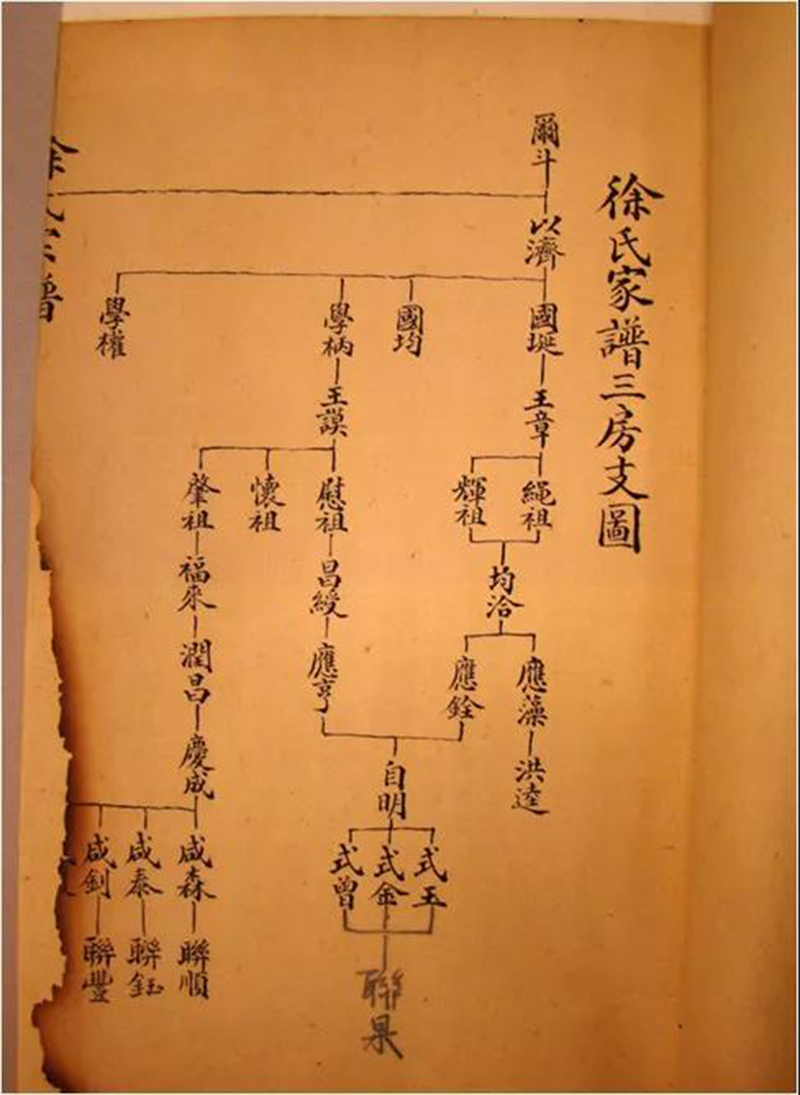 徐氏家譜三房支圖
爾斗
以濟
國埏
國均
學柄
學權
王章
王謨
繩祖
輝祖
慰祖
懷祖
肇祖
均洽
昌綬
福來
應藻
應銓
應亨
潤昌
洪逵
自明
慶成
式玉
式金
式曾
咸森
咸泰
咸釗
聯果
聯順
聯鈺
聯豐
徐氏宗譜